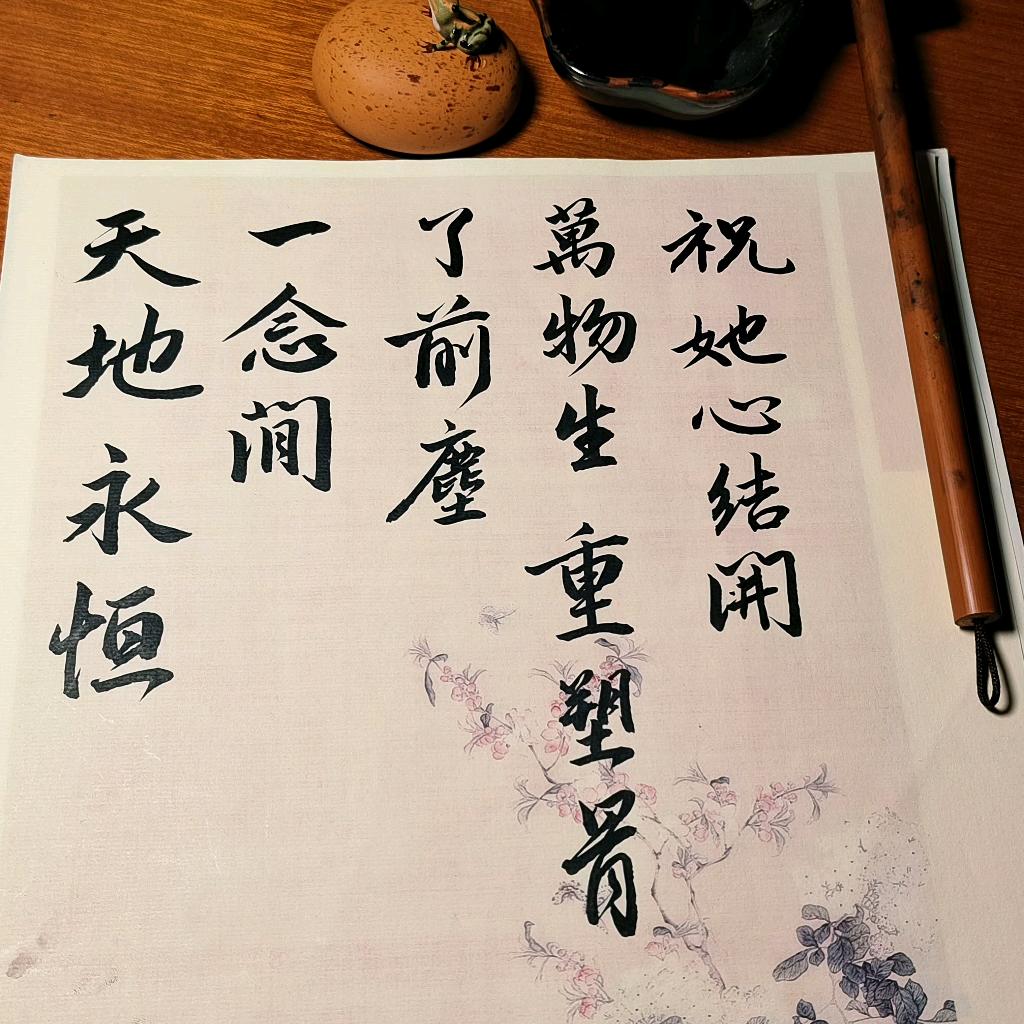 祝她心結開
萬物生 重塑骨
了前塵
一念間
天地永恒